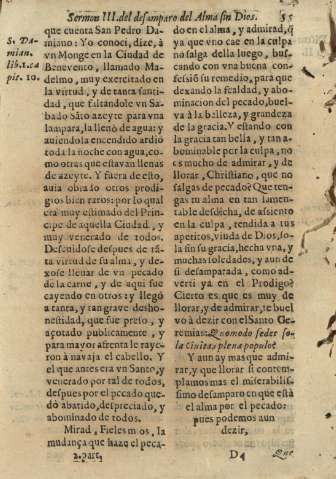 Sermon III. del desamparo del Alma sin Dios. 55
S. Da-
mian.
lib. 1. ca
pit. 10.
que cuenta San Pedro Da-
miano: Yo conoci, dize, à
vn Monge en la Ciudad de
Benevento, llamado Ma-
delmo, muy exercitado en
la virtud, y de tanta santi-
dad, que faltandole vn Sa-
bado Sãto azeyte para vna
lampara, la llenò de agua; y
auiendola encendido ardiò
toda la noche con agua, co-
mo otras que estavan llenas
de azeyte. Y fuera de esto,
auia obrado otros prodi-
gios bien raros: por lo qual
era muy estimado del Prin-
cipe de aquella Ciudad, y
muy venerado de todos.
Descuidose despues de tã-
ta virtud de su alma, y de-
xose llevar de vn pecado
de la carne, y de aqui fue
cayendo en otros; y llegò
a tanta, y tan grave desho-
nestidad, que fue preso, y
açotado publicamente, y
para mayor afrenta le raye-
ron à navaja el cabello. Y
el que antes era vn Santo, y
venerado por tal de todos,
despues por el pecado que-
dò abatido, despreciado, y
abominado de todos.
Mirad, Fieles mios, la
mudança que hazo el peca-
2. part.
do en el alma, y admirad, q̃
ya que vno cae en la culpa
no salga della luego, bus-
cando con vna buena con-
fessiõ su remedio, para que
dexando la fealdad, y abo-
minacion del pecado, buel-
va à la belleza, y grandeza
de la gracia. Y estando con
la gracia tan bella, y tan a-
bominable por la culpa, no
es mucho de admirar, y de
llorar, Christiano, que no
salgas de pecado? Que ten-
gas tu alma en tan lamen-
table desdicha, de assiento
en la culpa, rendida a tus
apetitos, viuda de Dios, so-
la sin su gracia, hecha vna, y
muchas soledades, y aun de
si desamparada, como ad-
vertì ya en el Prodigo?
Cierto es que es muy de
llorar, y de admirar, te buel-
vo à dezir con el Santo Ge-
remias: Quomodo sedet so-
la civitas plena populo?
Y aun ay mas que admi-
rar, y que llorar si contem-
plamos mas el miserabilis-
simo desamparo en que està
el alma por el pecado:
pues podemos aun
dezir,
D4 Que